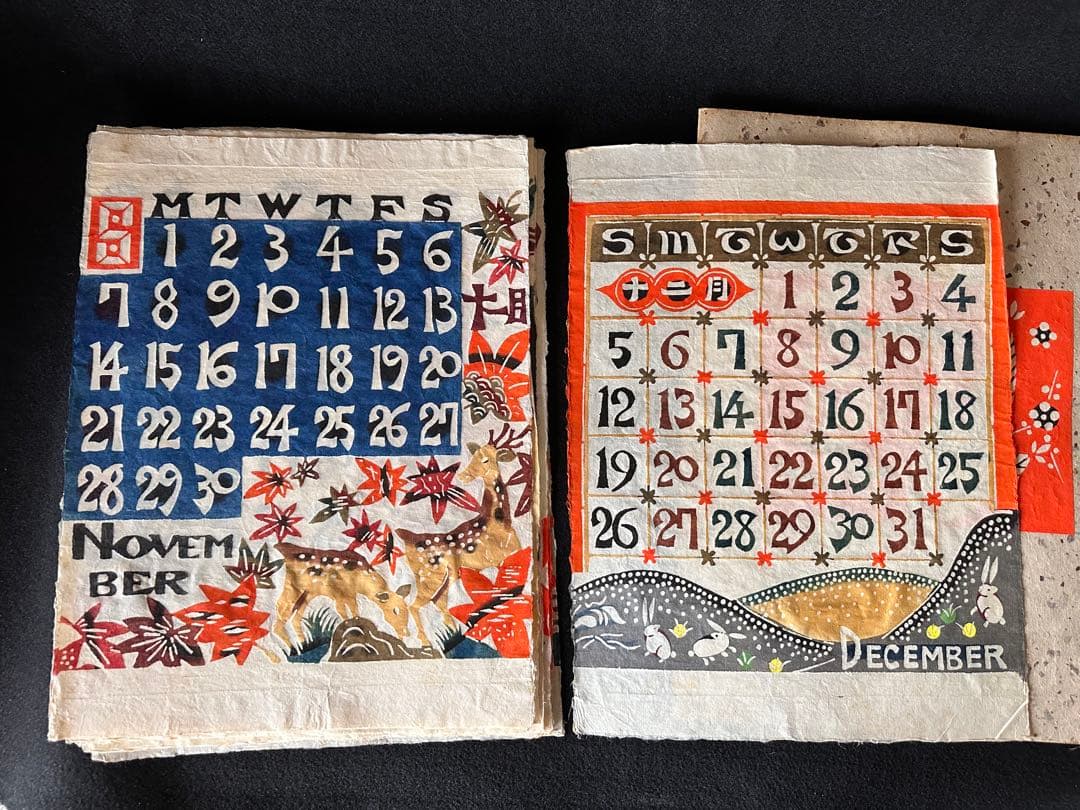 M T W T F S
1 2 3 4 5 6
7 8 9 10 11 12 13
十一月
14 15 16 17 18 19 20
21 22 23 24 25 26 27
28 29 30
NOVEM
BER
S M T W T F S
十二月 1 2 3 4
5 6 7 8 9 10 11
12 13 14 15 16 17 18
19 20 21 22 23 24 25
26 27 28 29 30 31
DECEMBER